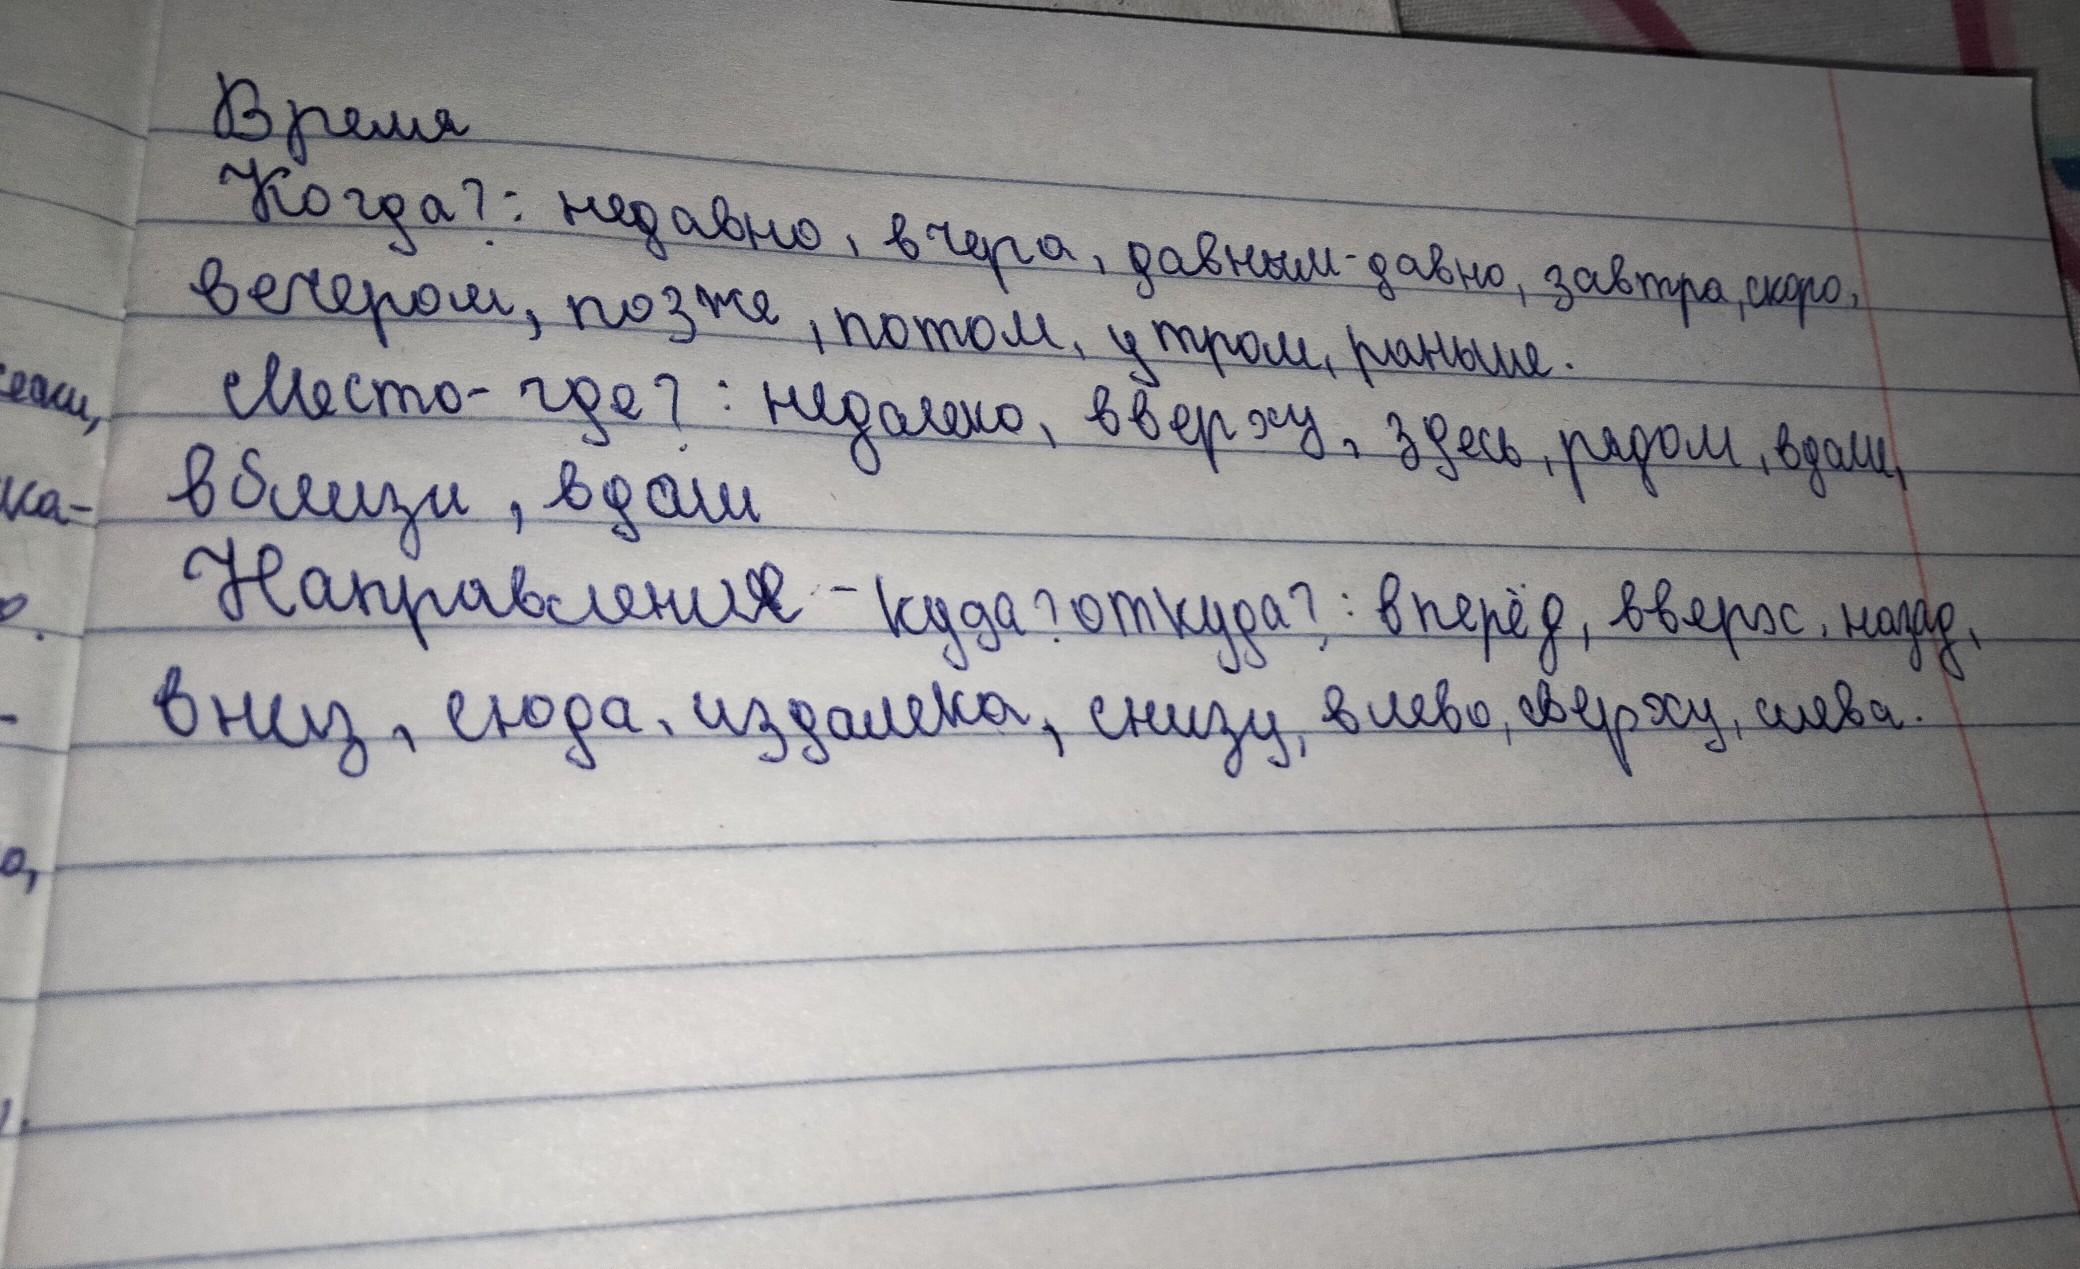 Время
Когда?: недавно, вчера, давным-давно, завтра, скоро,
вечером, позже, потом, утром, раньше.
Место- где?: недалеко, вверху, здесь, рядом, вдали,
вблизи, вдали
Направления - куда? откуда?: вперёд, вверх, назад,
вниз, сюда, издалека, снизу, влево, сверху, слева.
ка-